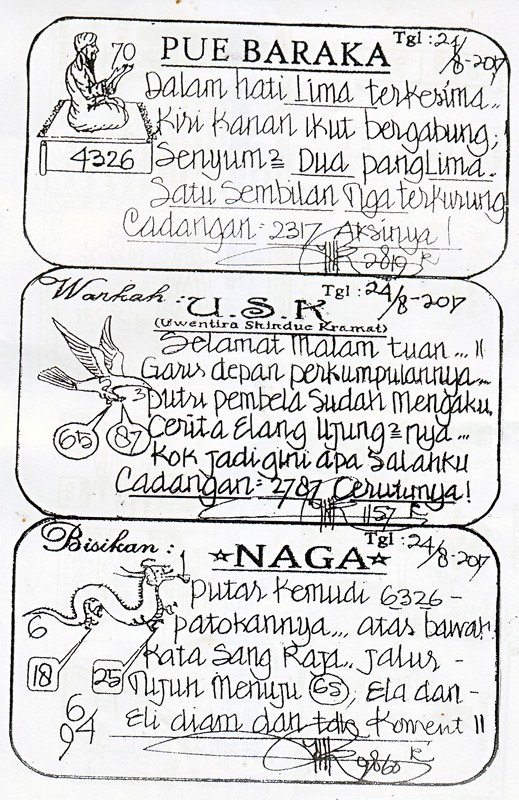 70 PUE BARAKA Tgl : 24/8-2017
Dalam hati Lima terkesima..
Kiri Kanan ikut bergabung;
4326 Senyum2 Dua pangLima.
Satu Sembilan Nga terkurung
Cadangan: 2317 Aksinya!
2819 R
Warkah : U.S.K Tgl : 24/8-2017
(Uwentira Shindue Kramat)
Selamat Malam tuan... !!
Garis depan perkumpulannya...
Putri pembela Sudah Mengaku.
65 87 Cerita Elang Ujung2nya...
Kok jadi gini apa Salahku
Cadangan: 2787 Cerutunya!
1157 R
Bisikan : ☆NAGA☆ Tgl : 24/8-2017
putar Kemudi 6326 -
6 patokannya... atas bawah!
18 25 Kata Sang Raja.. jalur -
Tujuh Menuju 65, Ela dan -
64 Eli diam dan tdk Koment !!
9
9860 R